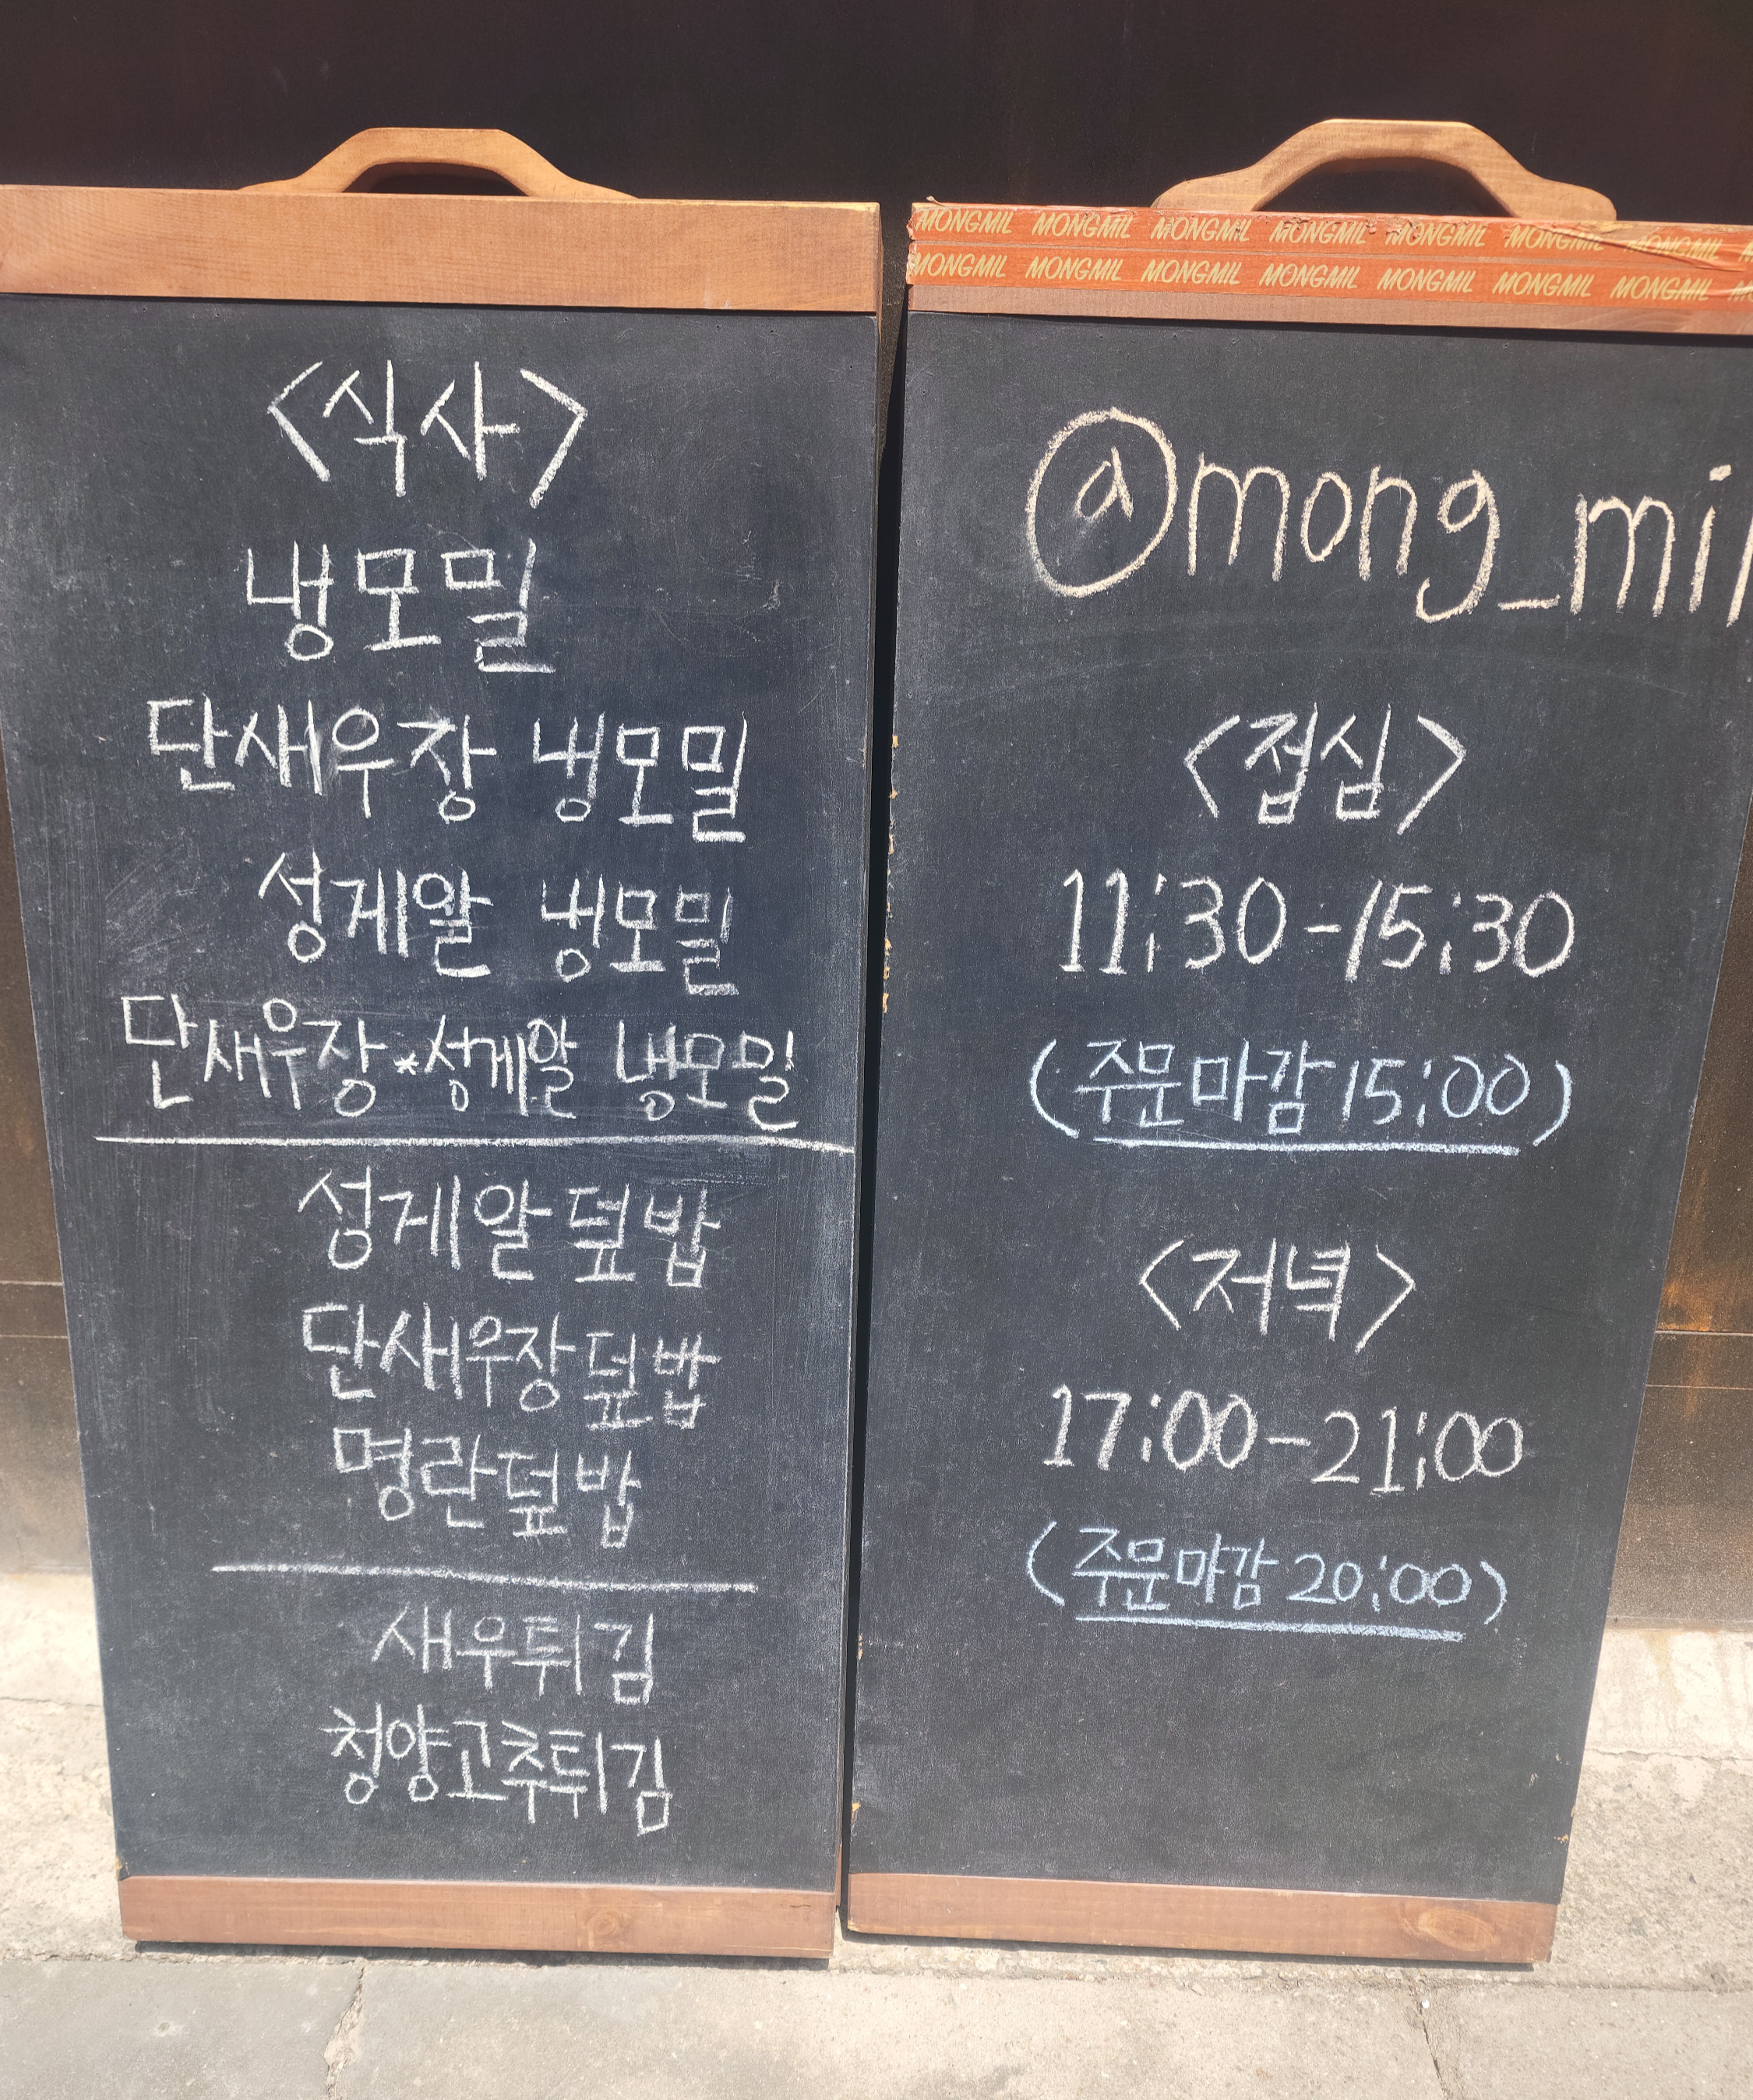 <식사>
냉모밀
단새우장 냉모밀
성게알 냉모밀
단새우장*성게알 냉모밀
성게알덮밥
단새우장덮밥
명란덮밥
새우튀김
청양고추튀김
MONGMIL MONGMIL MONGMIL MONGMIL MONGMIL MONGMIL MONGMIL
MONGMIL MONGMIL MONGMIL MONGMIL MONGMIL MONGMIL MONGMIL
@mong_mil
<접심>
11:30-15:30
(주문마감 15:00)
<저녁>
17:00-21:00
(주문마감 20:00)